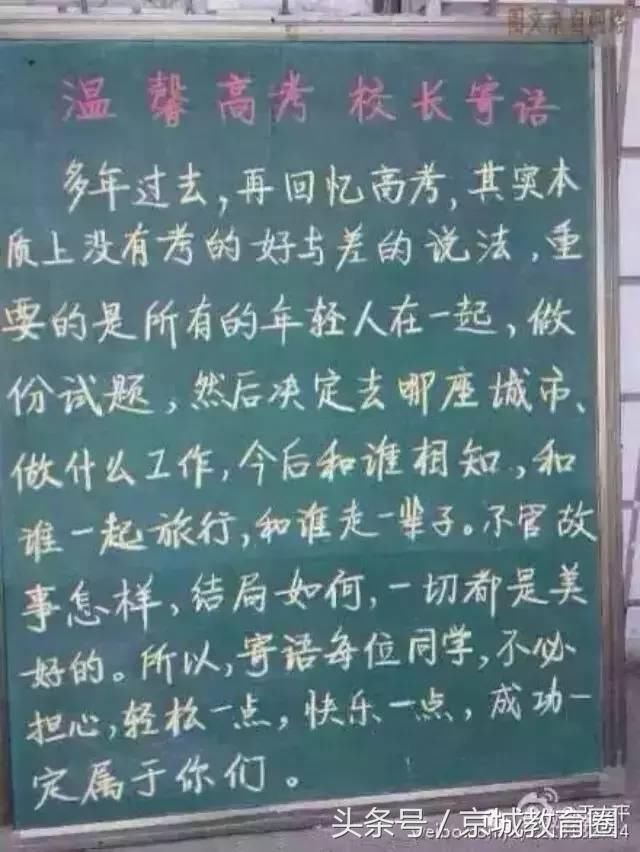 图文来自网络
温馨高考 校长寄语
多年过去,再回忆高考,其实本
质上没有考的好与差的说法,重
要的是所有的年轻人在一起,做
份试题,然后决定去哪座城市、
做什么工作,今后和谁相知,和
谁一起旅行,和谁走一辈子。不管故
事怎样,结局如何,一切都是美
好的。所以,寄语每位同学,不必
担心,轻松一点,快乐一点,成功一
定属于你们。
头条号/京城教育圈